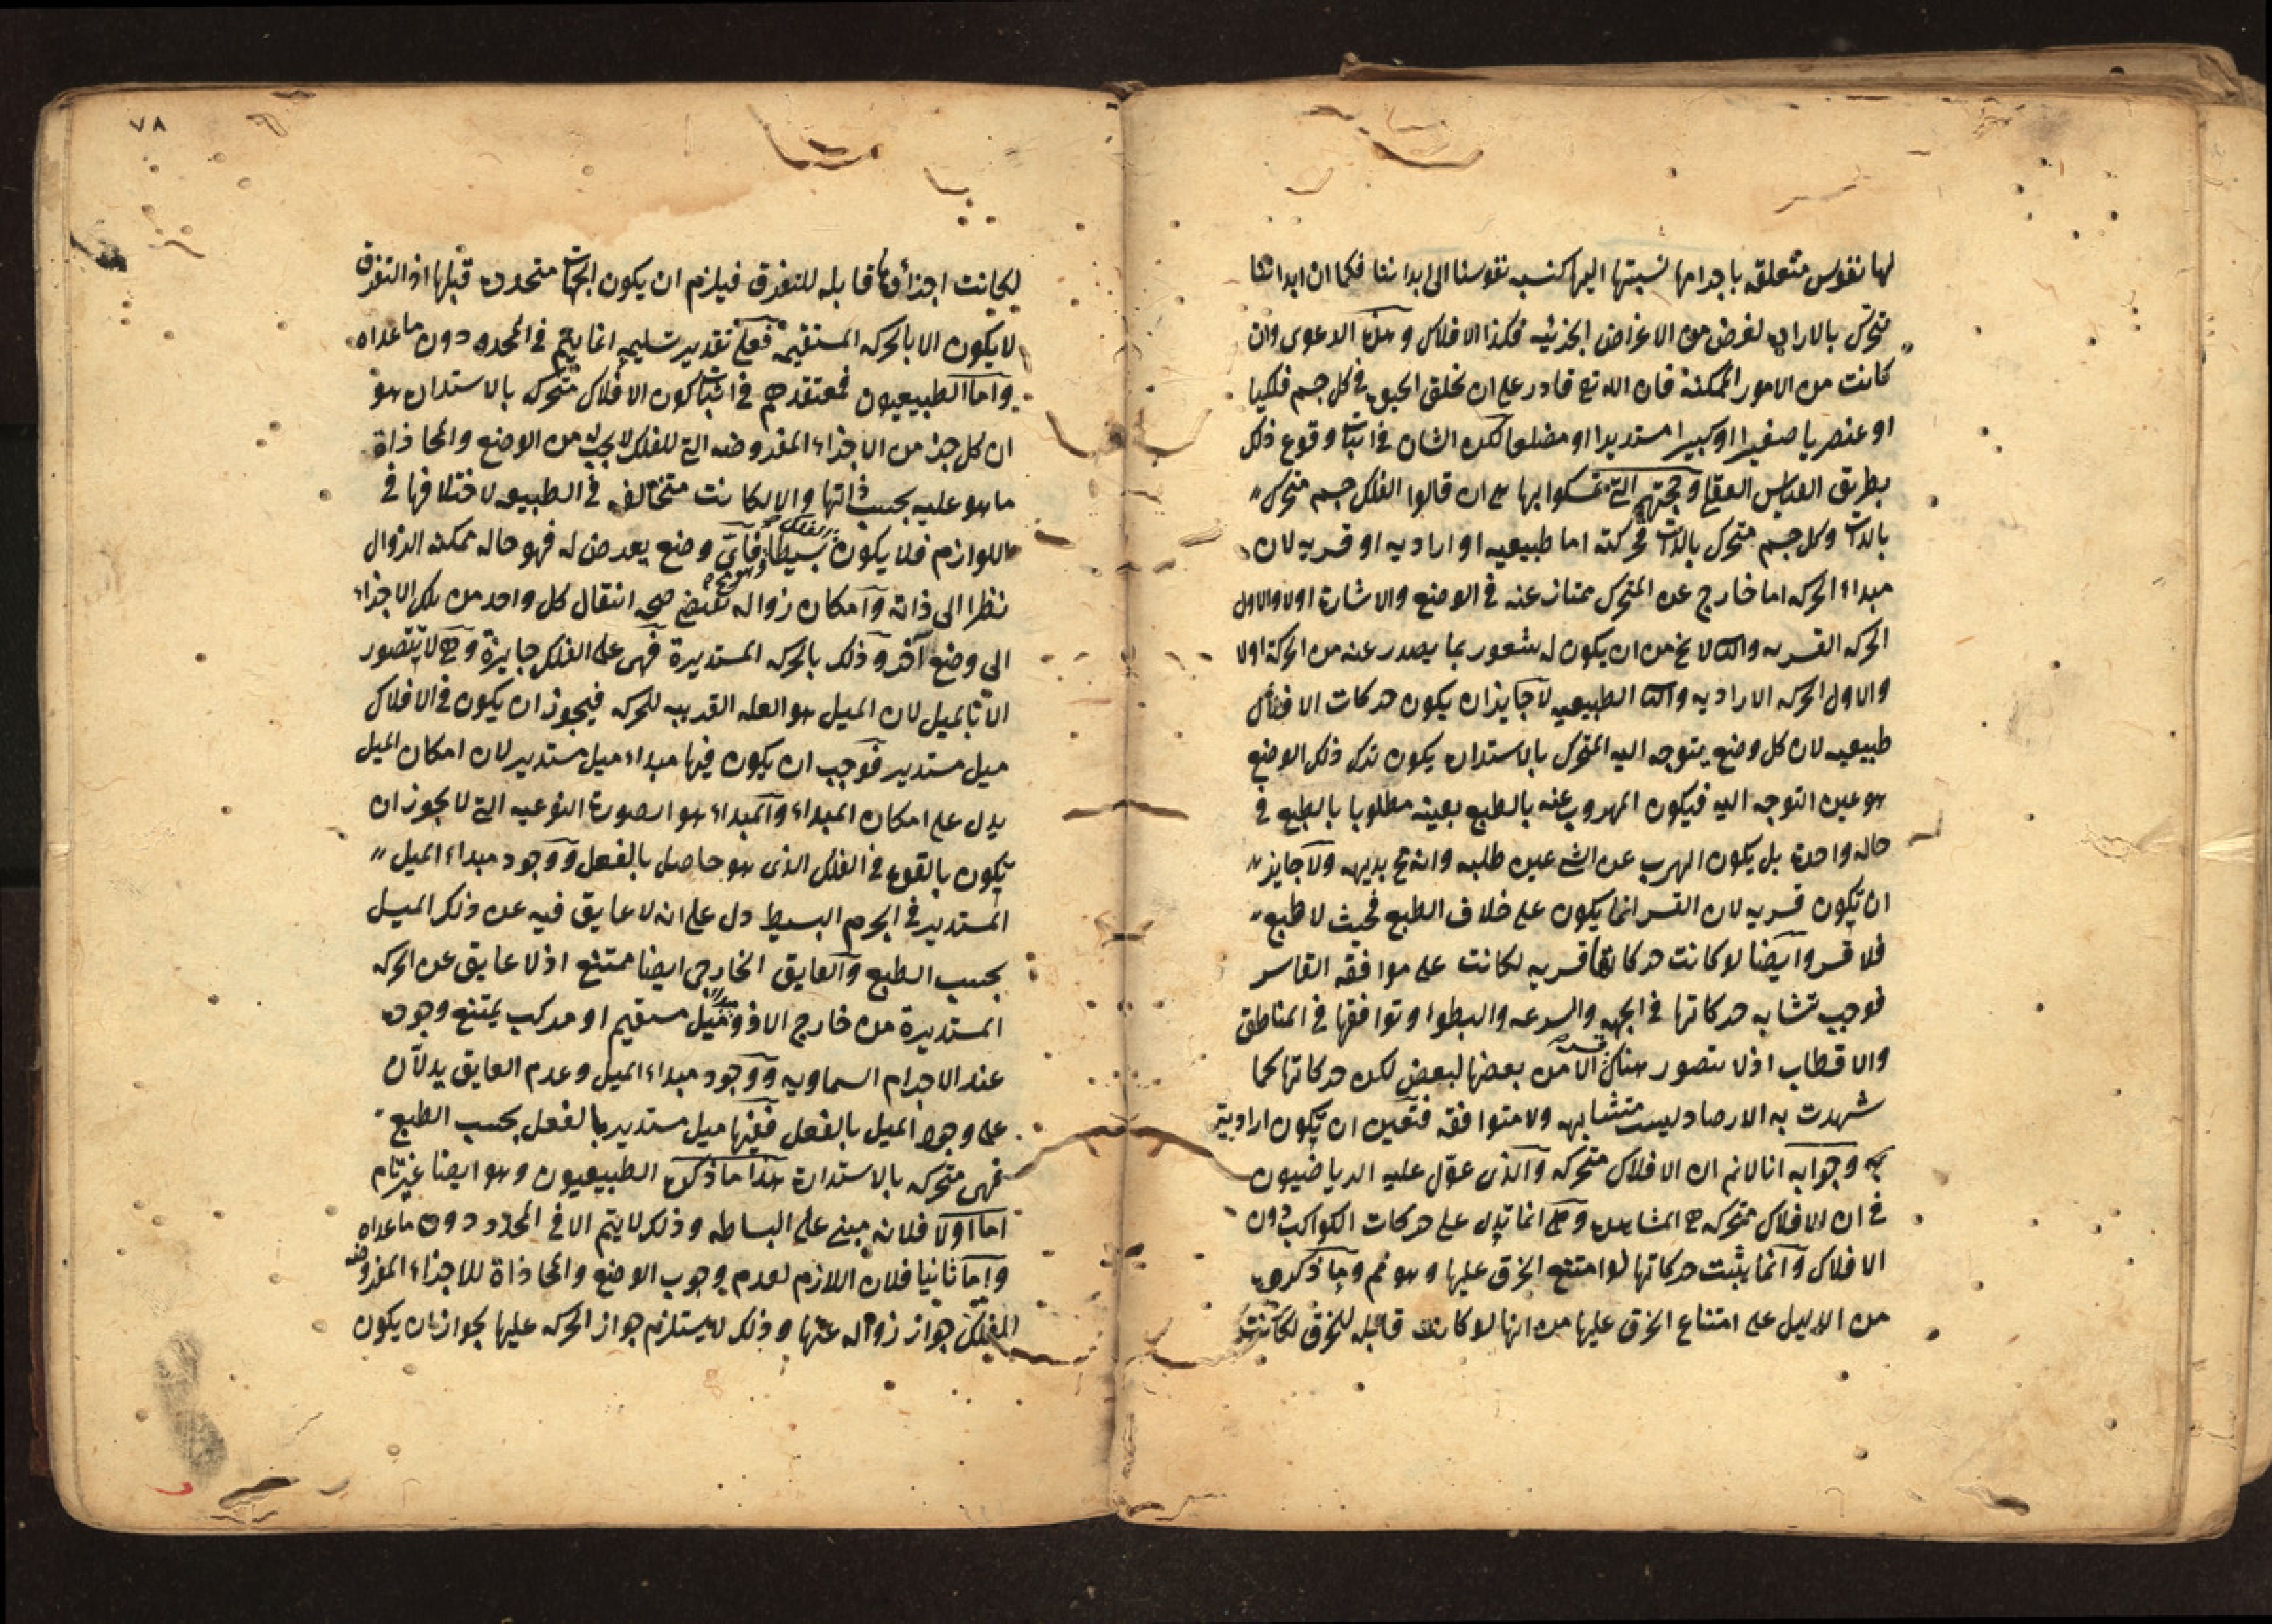 لها نفوس متعلقه باجرامها نسبتها اليها كنسبه نفوسنا الى ابداننا فكما ان ابداننا
تتحرك بالاراده لغرض من الاغراض الجزئيه فكذا الافلاك وهذه الدعوى وان
كانت من الامور الممكنه فان الله تع قادر على ان يخلق الحيوة في كل جسم فلكيا
او عنصريا صغيرا او كبيرا مستديرا او مضلعا لكن الشان في اثبات وقوع ذلك
بطريق القياس العقلي وحجتهم التي تمسكوا بها هي ان قالوا الفلك جسم متحرك
بالذات وكل جسم متحرك بالذات فحركته اما طبيعيه او اراديه او قسريه لان
مبداء الحركه اما خارج عن المتحرك ممتاز عنه في الوضع والاشارة اولا والاول
الحركه القسريه والثانى لا يخ من ان يكون له شعور بما يصدر عنه من الحركة اولا
والاول الحركه الاراديه والثانى الطبيعيه لا جايز ان يكون حركات الافلاك
طبيعيه لان كل وضع يتوجه اليه المتحرك بالاستداره يكون ترك ذلك الوضع
هو عين التوجه اليه فيكون المهروب عنه بالطبع بعينه مطلوبا بالطبع في
حاله واحدة بل يكون الهرب عن الشي عين طلبه وانه مح بديهه ولا جايز
ان يكون قسريه لان القسر انما يكون على خلاف الطبع فحيث لا طبع
فلا قسر وايضا لو كانت حركاتها قسريه لكانت على موافقه القاسر
فوجب تشابه حركاتها في الجهه والسرعه والبطوء وتوافقها في المناطق
والاقطاب اذ لا يتصور هناك قسر الا من بعضها لبعض لكن حركاتها كما
شهدت به الارصاد ليست متشابهه ولا متوافقه فتعين ان يكون اراديه
وجوابه انا لا نم ان الافلاك متحركه والذى عول عليه الرياضيون
في ان الافلاك متحركه هي المشاهده وهي انما تدل على حركات الكواكب دون
الافلاك وانما يثبت حركاتها لو امتنع الخرق عليها وهو مم وما ذكروه
من الدليل على امتناع الخرق عليها من انها لو كانت قابله للخرق لكانت
٧٨
لكانت اجزاؤها قابله للتفرق فيلزم ان يكون الجهات متحدده قبلها اذ التفرق
لا يكون الا بالحركه المستقيمه فعلى تقدير تسليمه انما يتم في المحدد دون ما عداه
واما الطبيعيون فمعتقدهم في اثبات كون الافلاك متحركه بالاستداره هو
ان كل جزء من الاجزاء المفروضه التي للفلك لا يجب له من الوضع والمحاذاة
ما هو عليه بحسب ذاتها والا لكانت متخالفه في الطبيعه لاختلافها في
اللوازم فلا يكون الفلك بسيطا فاى وضع يعرض له فهو حاله ممكنه الزوال
نظرا الى ذاته وامكان زواله يقتضي صحه انتقال كل واحد من تلك الاجزاء
الى وضع آخر وذلك بالحركه المستديرة فهى على الفلك جايزة وهي لا يتصور
الا بالميل لان الميل هو العله القريبه للحركه فيجوز ان يكون في الافلاك
ميل مستدير فوجب ان يكون فيها مبداء ميل مستدير لان امكان الميل
يدل على امكان المبداء والمبداء هو الصورة النوعيه التي لا يجوز ان
يكون بالقوه في الفلك الذى هو حاصل بالفعل ووجود مبداء الميل
المستدير في الجرم البسيط دل على انه لا عايق فيه عن ذلك الميل
بحسب الطبع والعايق الخارجى ايضا ممتنع اذ لا عايق عن الحركه
المستديرة من خارج الا ذو ميل مستقيم او مركب يمتنع وجوده
عند الاجرام السماويه ووجود مبداء الميل وعدم العايق يدلان
على وجود الميل بالفعل ففيها ميل مستدير بالفعل بحسب الطبع
فهى متحركه بالاستدارة هذا ما ذكره الطبيعيون وهو ايضا غير تام
اما اولا فلانه مبني على البساطه وذلك لا يتم الا في المحدد دون ما عداه
واما ثانيا فلان اللازم لعدم وجوب الوضع والمحاذاة للاجزاء المفروضه
للفلك جواز زواله عنها وذلك لا يستلزم جواز الحركه عليها لجواز ان يكون